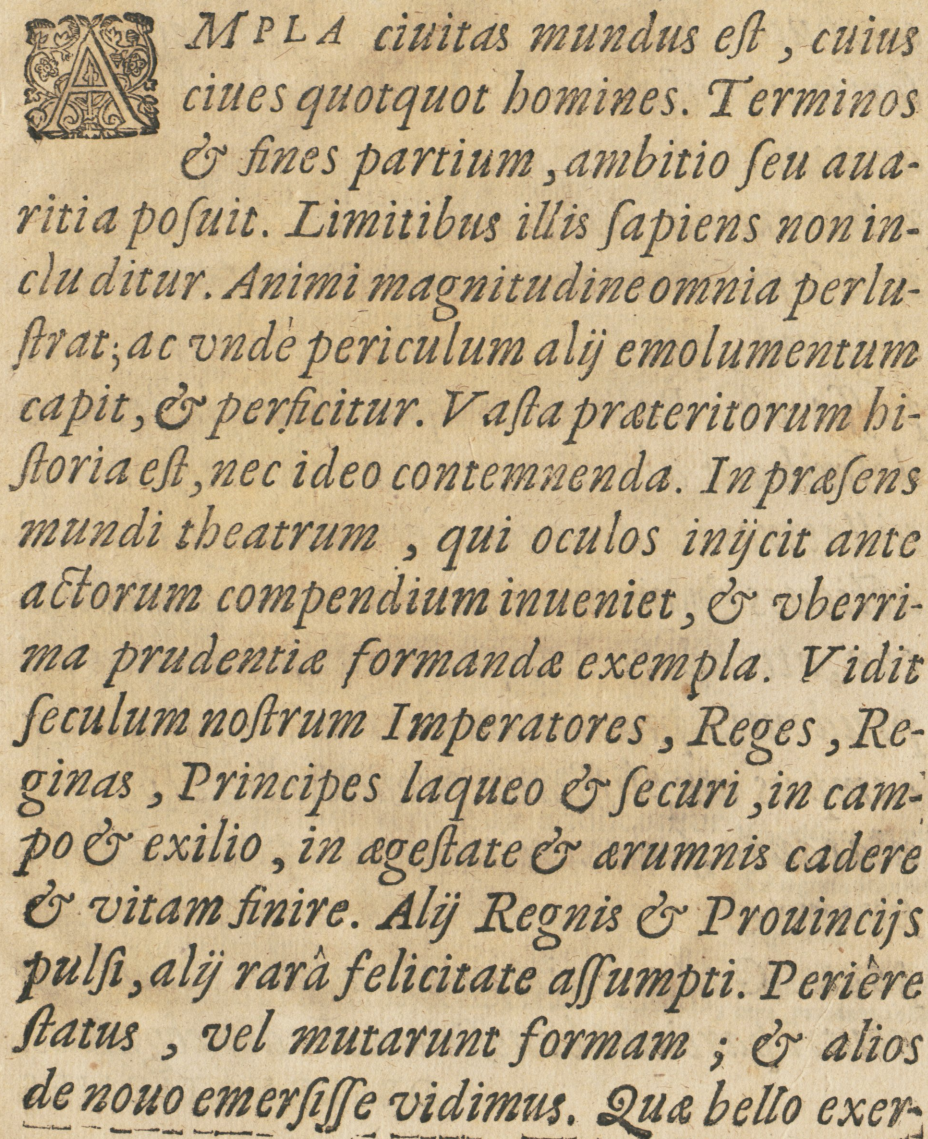 AMPLA ciuitas mundus eſt, cuius
ciues quotquot homines. Terminos
& fines partium, ambitio ſeu aua-
ritia poſuit. Limitibus illis ſapiens non in-
clu ditur. Animi magnitudine omnia perlu-
ſtrat; ac vndè periculum alij emolumentum
capit, & perficitur. Vaſta præteritorum hi-
ſtoria eſt, nec ideo contemnenda. In præſens
mundi theatrum, qui oculos inijcit ante
actorum compendium inueniet, & vberri-
ma prudentiæ formandæ exempla. Vidit
ſeculum noſtrum Imperatores, Reges, Re-
ginas, Principes laqueo & ſecuri, in cam-
po & exilio, in ægeſtate & ærumnis cadere
& vitam finire. Alij Regnis & Prouincijs
pulſi, alij rarâ felicitate aſſumpti. Periêre
ſtatus, vel mutarunt formam; & alios
de nouo emerſiſſe vidimus. Quæ bello exer-